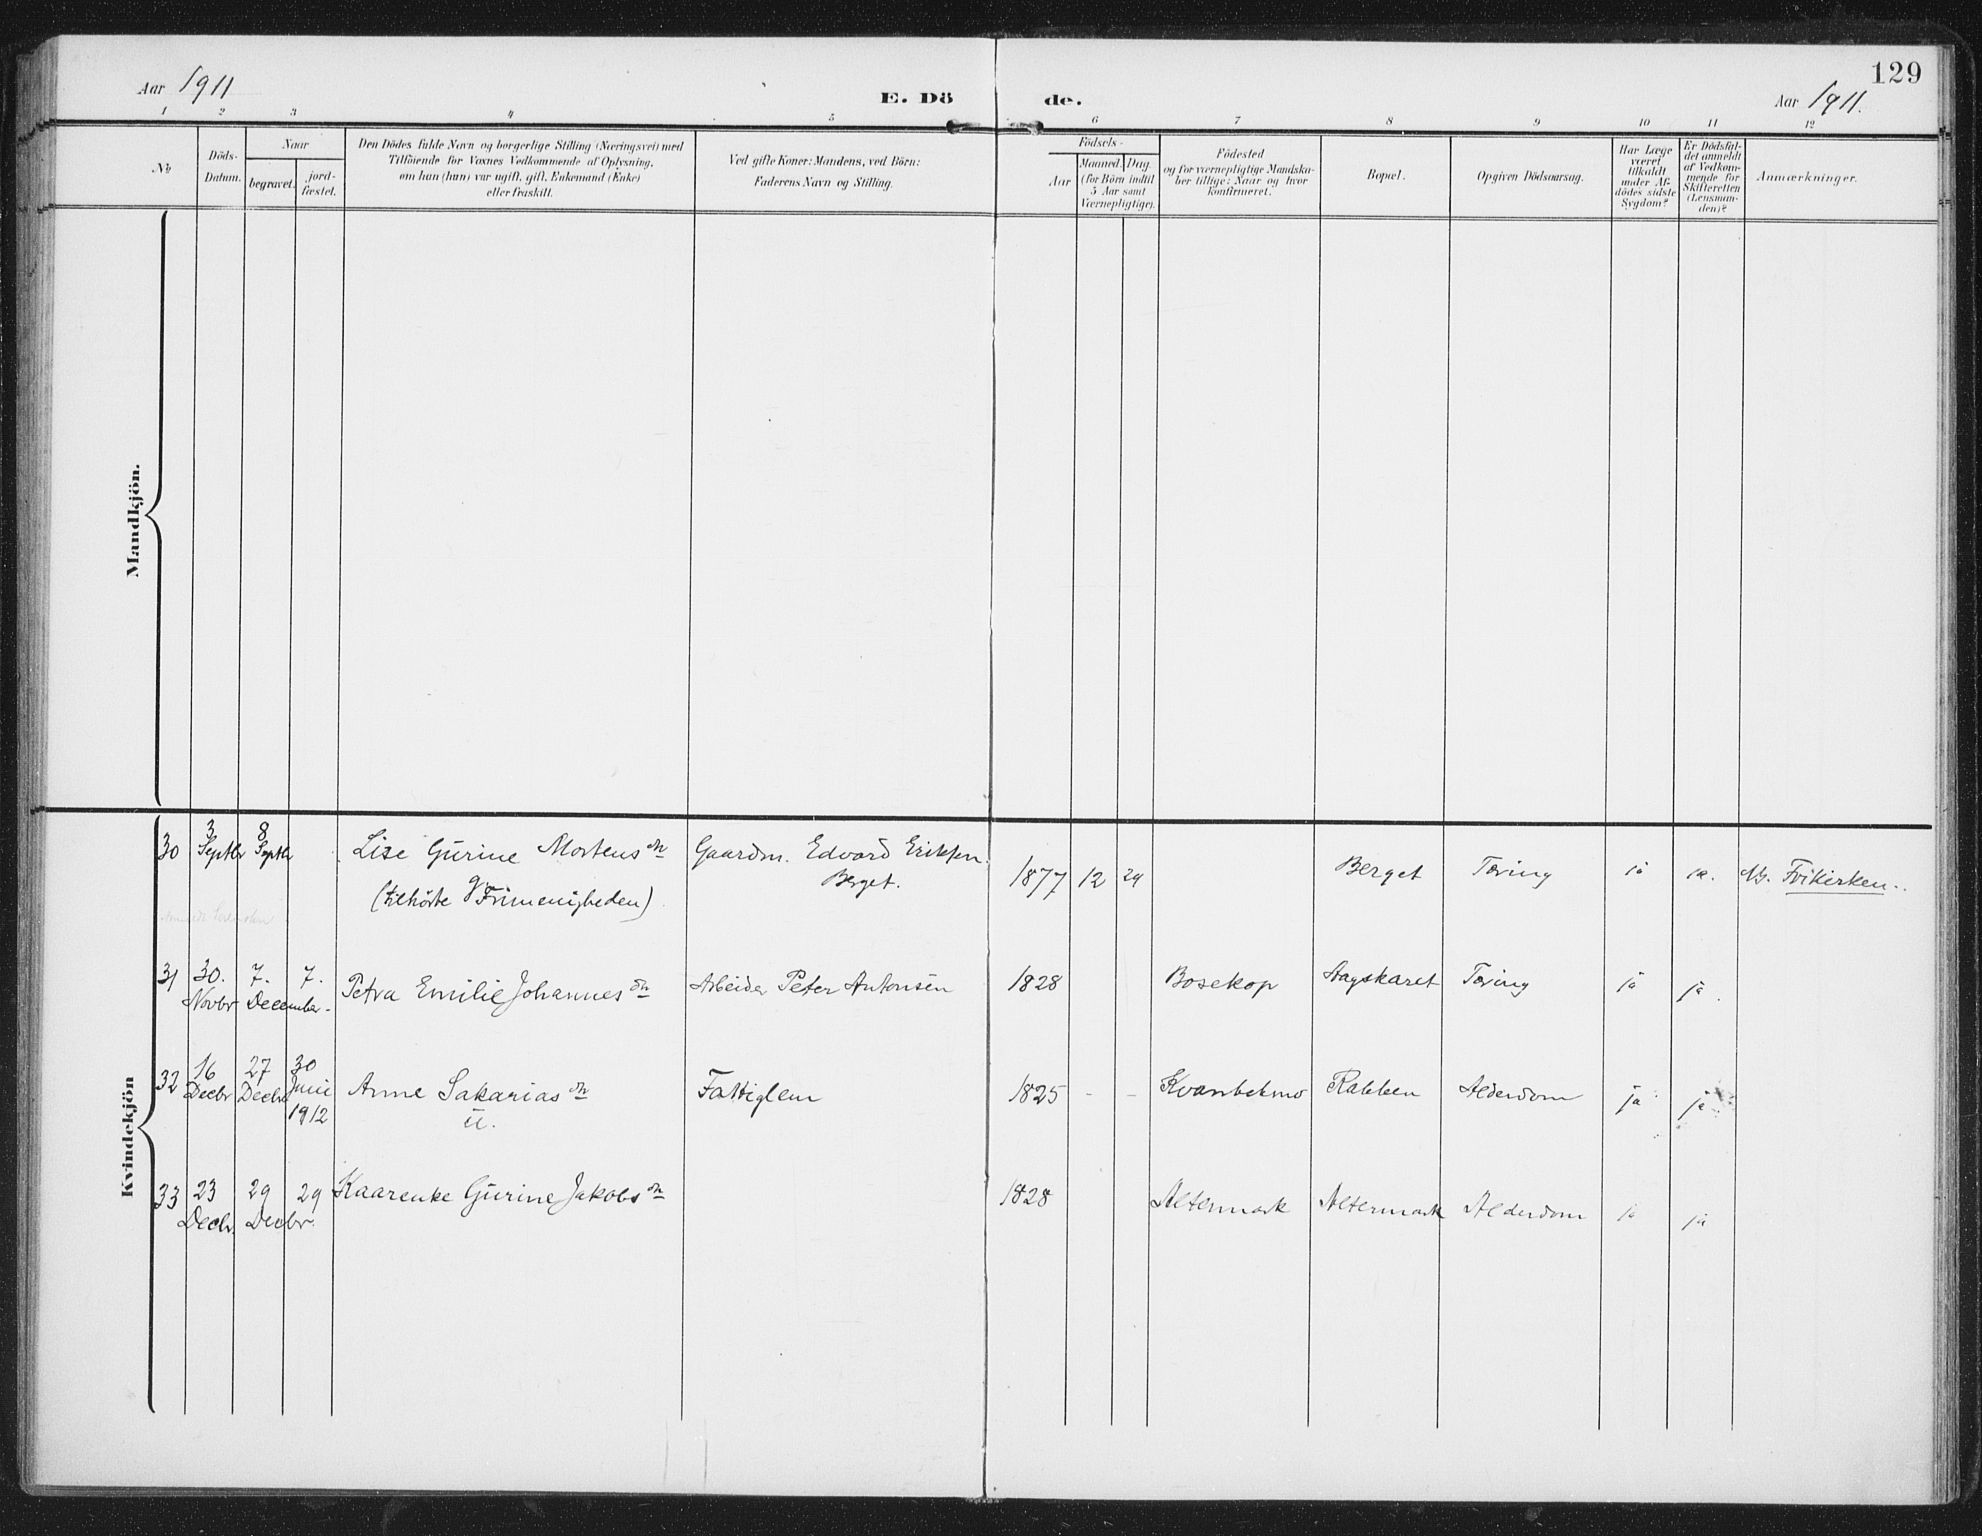 Aar 1911
E. Dö de.
Aar 1911.
129
1 2 3 4 5 6 7 8 9 10 11 12
No
Döds-
Datum.
Naar
begravet.
jord-
fæstet.
Den Dödes fulde Navn og borgerlige Stilling (Næringsvei) med
Tilföiende for Voxnes Vedkommende af Oplysning,
om han (hun) var ugift, gift, Enkemand (Enke)
eller fraskilt.
Ved gifte Koner: Mandens, ved Börn:
Faderens Navn og Stilling.
Födsels-
Aar
Maaned. Dag.
(for Börn indtil
5 Aar samt
Værnepligtige).
Födested
og for værnepligtige Mandska-
ber tillige: Naar og hvor
konfirmeret.
Bopæl.
Opgiven Dödsaarsag.
Har Læge
været
tilkaldt
under Af-
dödes sidste
Sygdom?
Er Dödsfal-
det anmeldt
af Vedkom-
mende for
Skifteretten
(Lensman-
den)?
Anmærkninger.
Mandkjön.
Kvindekjön
30 3 Septbr 8 Septbr Lise Gurine Mortens dtr Gaardm. Edvard Eriksen 1877 12 24 Berget Tæring ja ja. NB. Frikirken.
g.
Berget.
(tilhörte Frimenigheden)
31 30. Novbr 7. 7. December. Petra Emilie Johannes dtr Arbeider Peter Antonsen 1828 Bosekop Hagskaret Tæring ja ja.
32 16 Decbr 27 Decbr 30 Juni 1912 Anne Sakarias dtr Fattiglem 1825 - - Rabben Alderdom ja ja
u.
33 23 Decbr. 29 29 Decbr. Kaarenke Gurine Jakobs dtr 1828 Altermark Altermark Alderdom ja ja